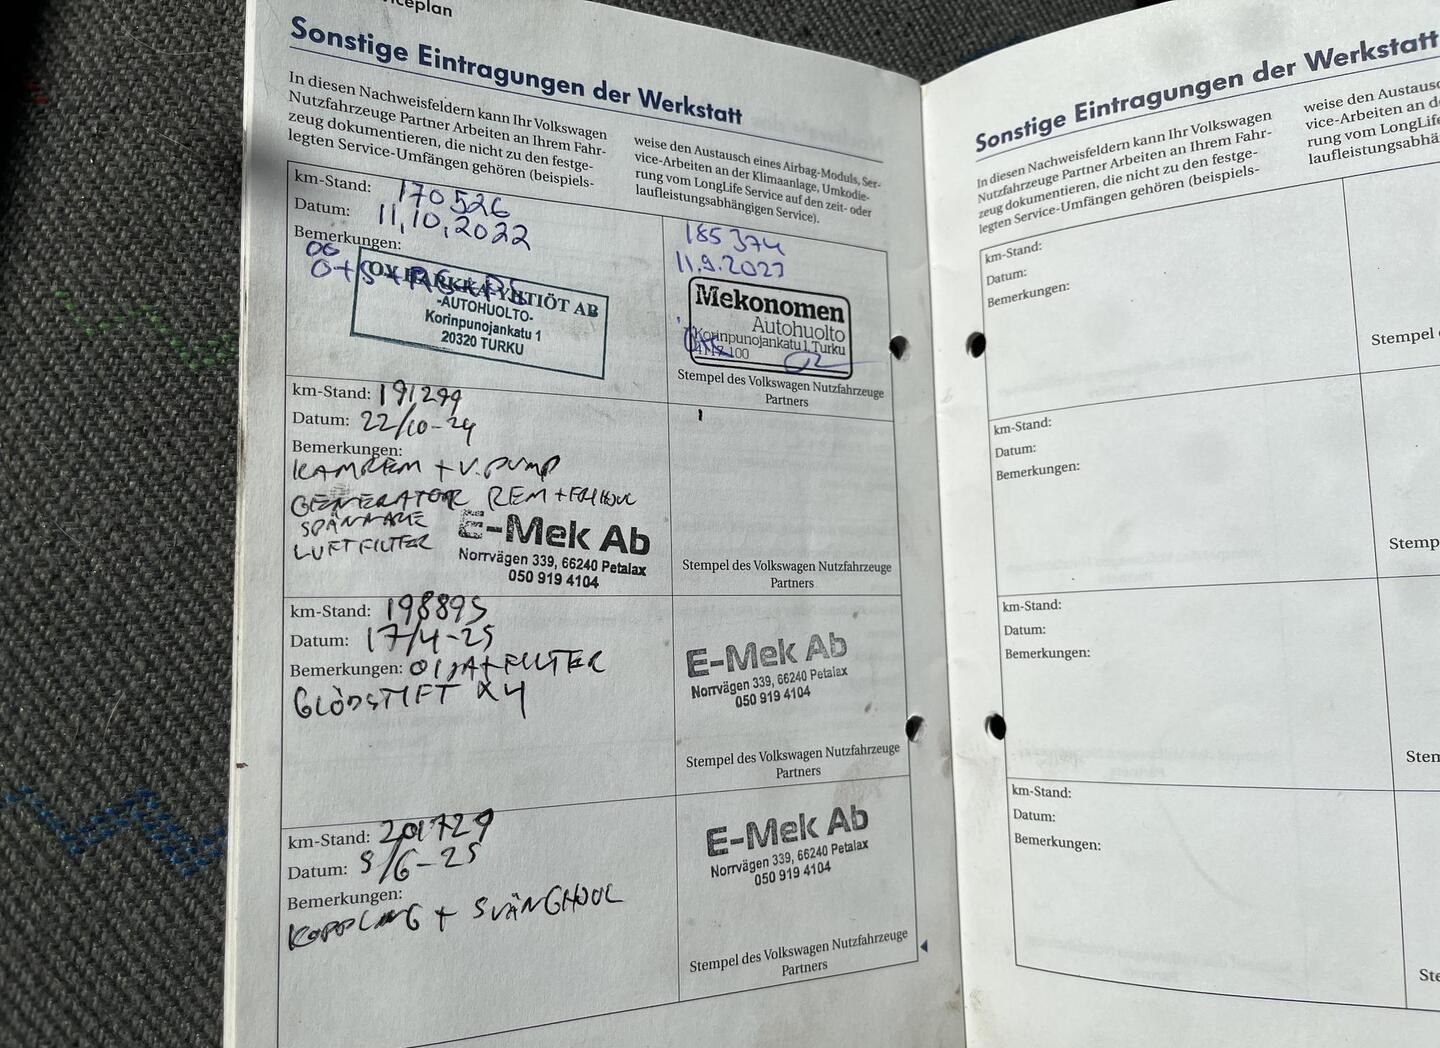 Sonstige Eintragungen der Werkstatt
In diesen Nachweisfeldern kann Ihr Volkswagen
Nutzfahrzeuge Partner Arbeiten an Ihrem Fahr-
zeug dokumentieren, die nicht zu den festge-
legten Service-Umfängen gehören (beispiels-
weise den Austausch eines Airbag-Moduls, Ser-
vice-Arbeiten an der Klimaanlage, Umkodie-
rung vom LongLife Service auf den zeit- oder
laufleistungsabhängigen Service).
km-Stand: 170526
Datum: 11.10.2022
Bemerkungen:
OY YHTIÖT AB
-AUTOHUOLTO-
Korinpunojankatu 1
20320 TURKU
185374
11.9.2023
Mekonomen
Autohuolto
Korinpunojankatu 1, Turku
100
Stempel des Volkswagen Nutzfahrzeuge
Partners
km-Stand: 191299
Datum: 22/10-24
Bemerkungen:
KAMREM + V.PUMP
GENERATOR REM + FRIHJUL
SPÄNNARE
LUFTFILTER
E-Mek Ab
Norrvägen 339, 66240 Petalax
050 919 4104
Stempel des Volkswagen Nutzfahrzeuge
Partners
km-Stand: 198895
Datum: 17/4-25
Bemerkungen: OLJA+FILTER
GLÖDSTIFT X4
E-Mek Ab
Norrvägen 339, 66240 Petalax
050 919 4104
Stempel des Volkswagen Nutzfahrzeuge
Partners
km-Stand: 201729
Datum: 5/6-25
Bemerkungen:
KOPPLING + SVÄNGHJUL
E-Mek Ab
Norrvägen 339, 66240 Petalax
050 919 4104
Stempel des Volkswagen Nutzfahrzeuge
Partners
Sonstige Eintragungen der Werkstatt
In diesen Nachweisfeldern kann Ihr Volkswagen
Nutzfahrzeuge Partner Arbeiten an Ihrem Fahr-
zeug dokumentieren, die nicht zu den festge-
legten Service-Umfängen gehören (beispiels-
weise den Austausc
vice-Arbeiten an de
rung vom LongLife
laufleistungsabhä
km-Stand:
Datum:
Bemerkungen:
Stempel
km-Stand:
Datum:
Bemerkungen:
Stemp
km-Stand:
Datum:
Bemerkungen:
Stem
km-Stand:
Datum:
Bemerkungen:
Ste